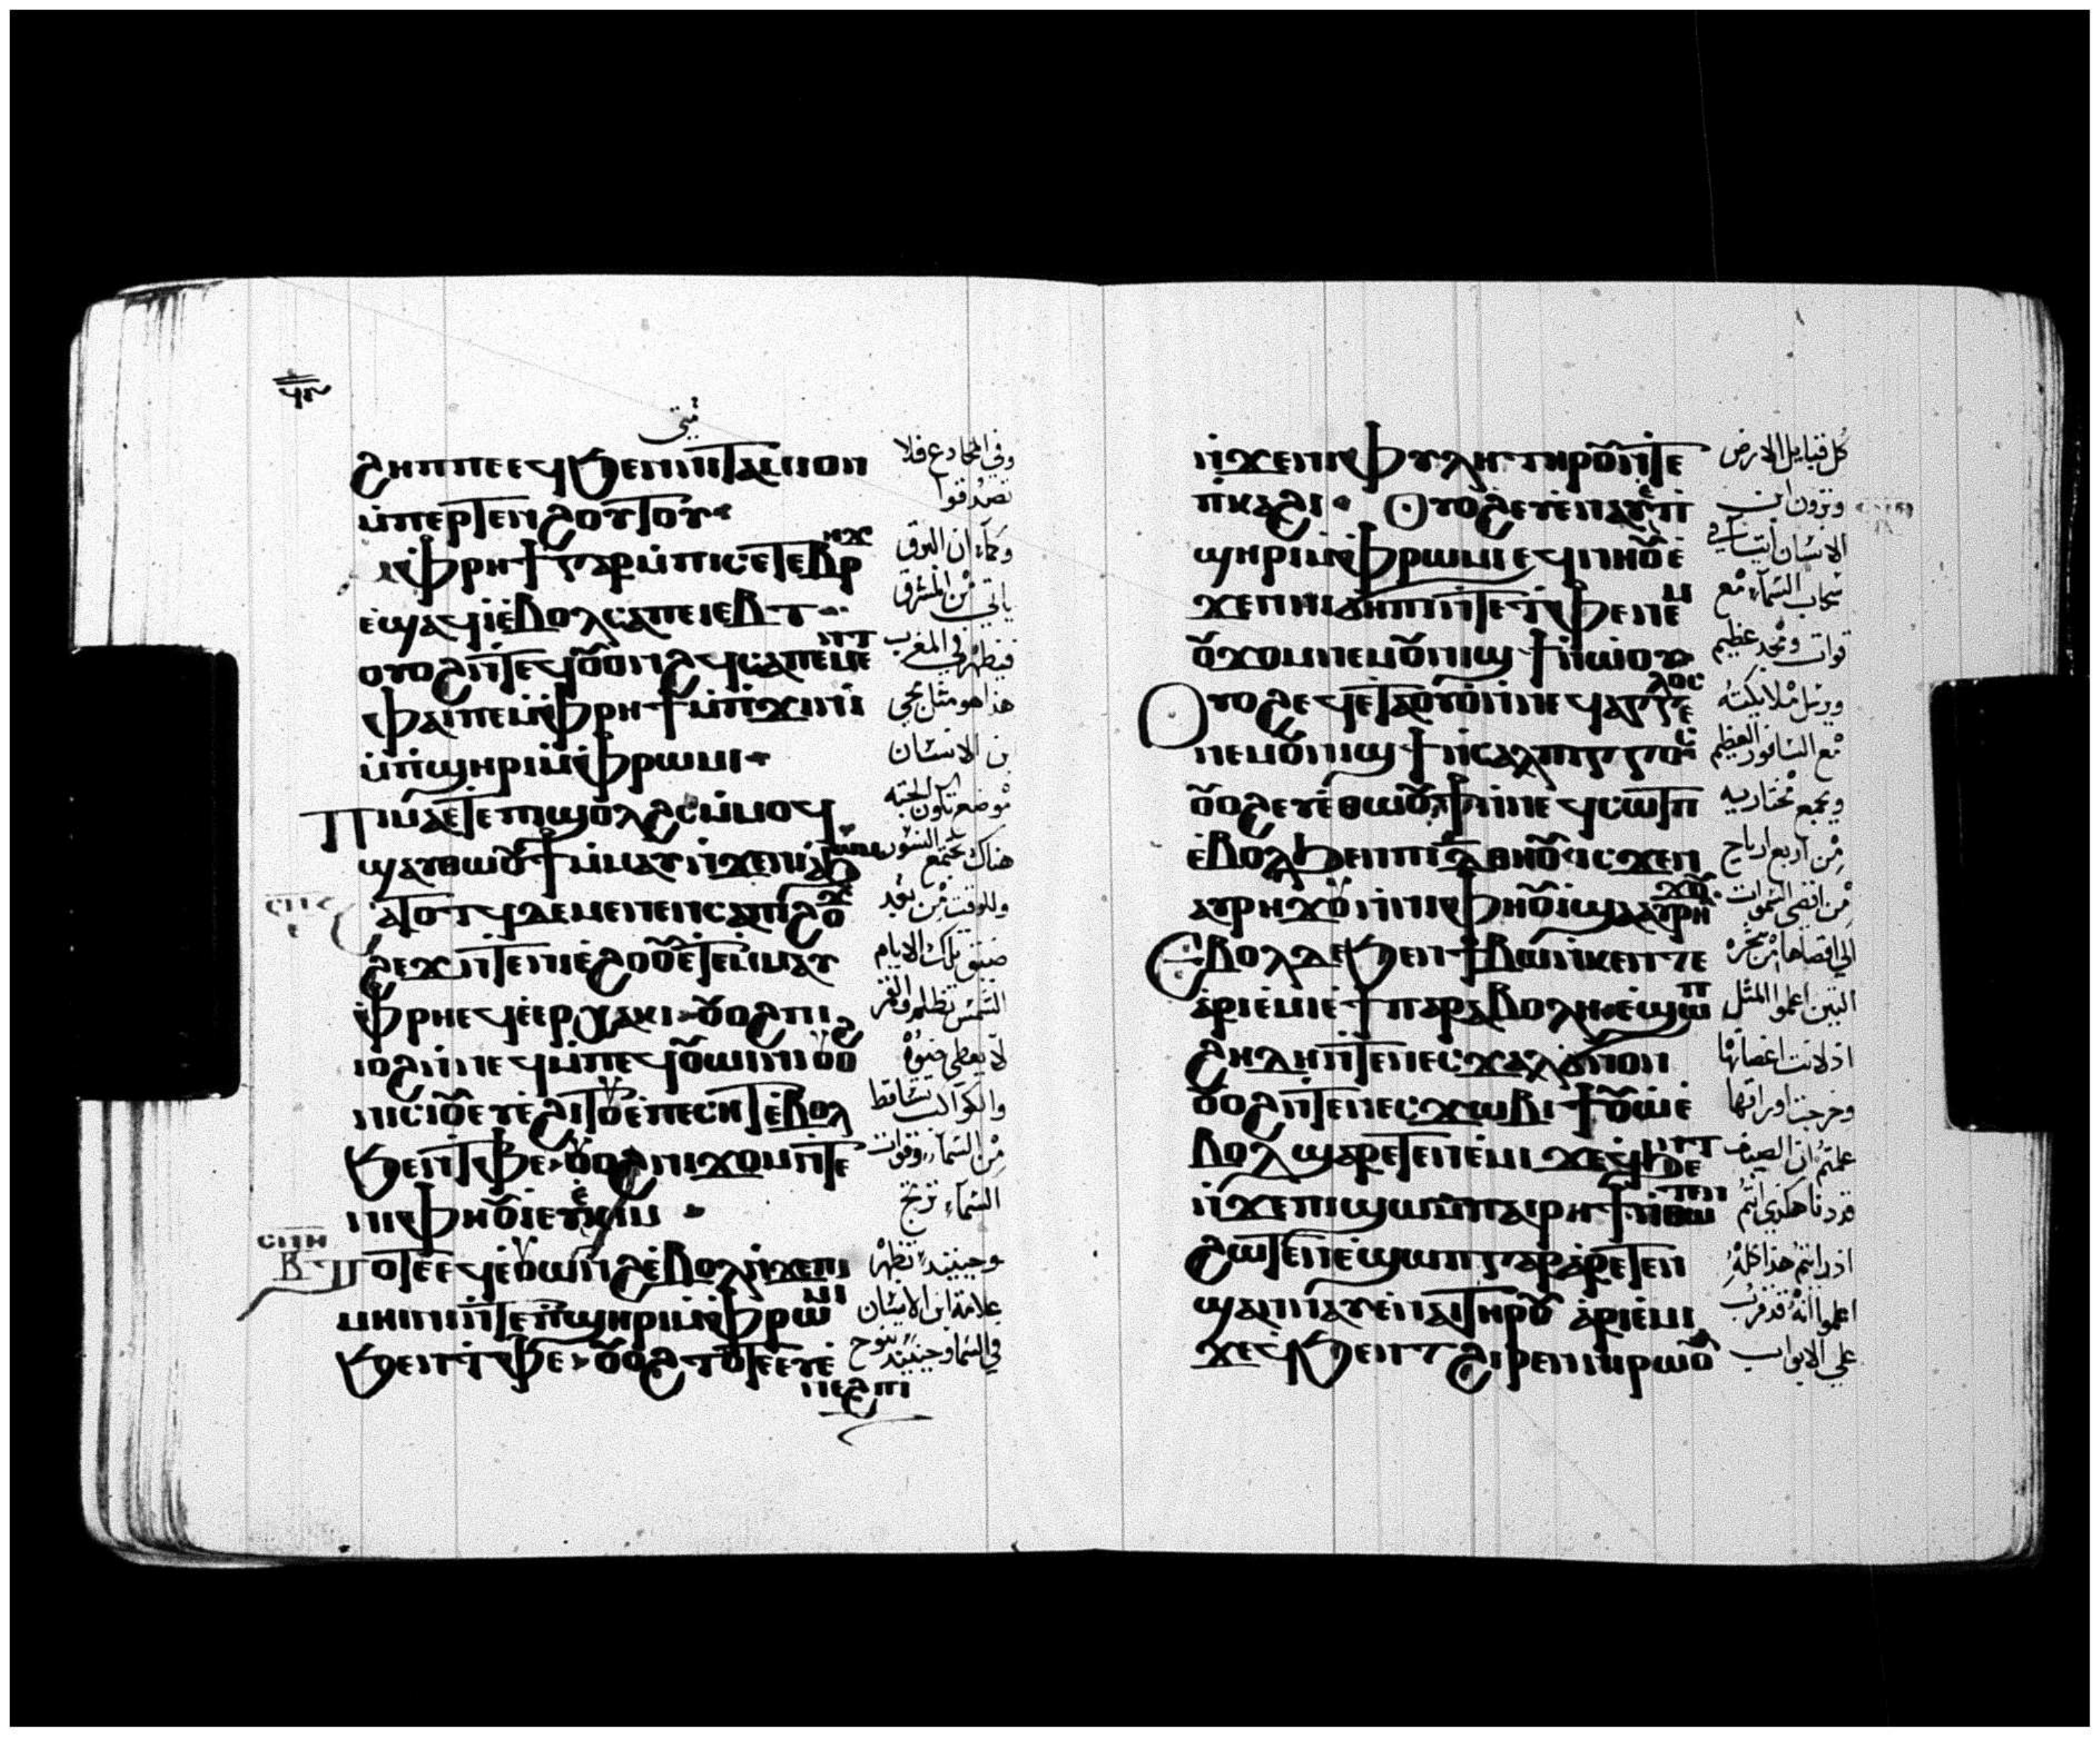 ϩⲏⲡⲡⲉ ⲉϥϧⲉⲛ ⲛⲓⲧⲁⲙⲓⲟⲛ
ⲙ̀ⲡⲉⲣⲧⲉⲛϩⲟⲩⲧⲟⲩ
ⲙ̀ⲫⲣⲏϯ ⲅⲁⲣ ⲙ̀ⲡⲓⲥⲉⲧⲉⲃⲣⲏϫ
ⲉ̀ϣⲁϥⲓ̀ ⲉ̀ⲃⲟⲗ ⲥⲁⲡⲉⲓⲉⲃⲧ
ⲟⲩⲟϩ ⲛ̀ⲧⲉϥⲟⲩⲟⲛϩϥ ⲥⲁⲡⲉⲙⲉⲛⲧ
ⲫⲁⲓ ⲡⲉ ⲙ̀ⲫⲣⲏϯ ⲙ̀ⲡϫⲓⲛⲓ̀
ⲙ̀ⲡϣⲏⲣⲓ ⲙ̀ⲫⲣⲱⲙⲓ
ⲡⲓⲙⲁ ⲉⲧⲉ ⲡϣⲟⲗϩⲥ ⲙ̀ⲙⲟϥ
ϣⲁⲩⲑⲱⲟⲩϯ ⲙ̀ⲙⲁⲩ ⲛ̀ϫⲉ ⲛⲓⲁϧⲱⲙ
ⲥⲁⲧⲟⲧϥ ⲇⲉ ⲙⲉⲛⲉⲛⲥⲁ ⲡⲓϩⲟϫ
ϩⲉϫ ⲛ̀ⲧⲉ ⲛⲓⲉ̀ϩⲟⲟⲩ ⲉ̀ⲧⲉⲙ̀ⲙⲁⲩ
ⲫⲣⲏ ⲉϥⲉ̀ⲉⲣⲭⲁⲕⲓ ⲟⲩⲟϩ ⲡⲓ
ⲓⲟϩ ⲛ̀ⲛⲉϥϯ ⲙ̀ⲡⲉϥⲟⲩⲱⲓⲛⲓ ⲟⲩⲟϩ
ⲛⲓⲥⲓⲟⲩ ⲉⲩⲉ̀ϩⲓⲧⲟⲩ ⲉ̀ⲡⲉⲥⲏⲧ ⲉ̀ⲃⲟⲗ
ϧⲉⲛ ⲧⲫⲉ ⲟⲩⲟϩ ⲛⲓϫⲟⲙ ⲛ̀ⲧⲉ
ⲛⲓⲫⲏⲟⲩⲓ̀ ⲉⲩⲉ̀ⲕⲓⲙ
ⲧⲟⲧⲉ ⲉϥⲉ̀ⲟⲩⲱⲛϩ ⲉ̀ⲃⲟⲗ ⲛ̀ϫⲉ ⲡⲓ
ⲙⲏⲓⲛⲓ ⲛ̀ⲧⲉ ⲡ̀ϣⲏⲣⲓ ⲙ̀ⲫⲣⲱⲙⲓ
ϧⲉⲛ ⲧ̀ⲫⲉ ⲟⲩⲟϩ ⲧⲟⲧⲉ ⲉⲩⲉ̀
ⲛⲉϩⲡⲓ
وفي المخادع فلا
تصدقوا
وكما ان البرق
ياتي من المشرق
فيظهر في المغرب
هذا هو مثل مجي
ن الانسان
موضع تكون الجثه
هناك تجتمع النسور
وللوقت من بعد
ضيق تلك الايام
الشمس تظلم والقمر
لا يعطي ضوه
والكواكب تتساقط
من السماء وقوات
السماء ترتج
وحينيذ تظهر
علامة ابن الانسان
في السما وحينيذ تنوح
ⲛ̀ϫⲉ ⲛⲓⲫⲩⲗⲏ ⲧⲏⲣⲟⲩ ⲛ̀ⲧⲉ
ⲡ̀ⲕⲁϩⲓ ⲟⲩⲟϩ ⲉⲩⲉ̀ⲛⲁⲩ ⲉ̀ⲡ̀
ϣⲏⲣⲓ ⲙ̀ⲫⲣⲱⲙⲓ ⲉϥⲛⲏⲟⲩ ⲉ̀
ϫⲉⲛ ⲛⲓϭⲏⲡⲓ ⲛ̀ⲧⲉ ⲧ̀ⲫⲉ ⲛⲉⲙ
ⲟⲩϫⲟⲙ ⲛⲉⲙ ⲟⲩⲛⲓϣϯ ⲛ̀ⲱⲟⲩ
ⲟⲩⲟϩ ⲉϥⲉ̀ⲧⲁⲟⲩⲟ̀ ⲛ̀ⲛⲉϥⲁⲅⲅⲉⲗⲟⲥ
ⲛⲉⲙ ⲟⲩⲛⲓϣϯ ⲛ̀ⲥⲁⲗⲡⲓⲅⲅⲟⲥ
ⲟⲩⲟϩ ⲉⲩⲉ̀ⲑⲱⲟⲩϯ ⲛ̀ⲛⲉϥⲥⲱⲧⲡ
ⲉ̀ⲃⲟⲗϧⲉⲛ ⲡⲓⲇ̅ ⲑⲏⲟⲩ ⲓⲥϫⲉⲛ
ⲁⲩⲣⲏϫⲟⲩ ⲛ̀ⲛⲓⲫⲏⲟⲩⲓ̀ ϣⲁ ⲁⲩⲣⲏϫⲟⲩ
ⲉ̀ⲃⲟⲗ ⲇⲉ ϧⲉⲛ ϯⲃⲱ ⲛ̀ⲕⲉⲛⲧⲉ
ⲁ̀ⲣⲓⲉ̀ⲙⲓ ⲉ̀ϯⲡⲁⲣⲁⲃⲟⲗⲏ ⲉ̀ϣⲱⲡ
ϩⲏⲇⲏ ⲛ̀ⲧⲉ ⲛⲉⲥϫⲁⲗ ϭⲛⲟⲛ
ⲟⲩⲟϩ ⲛ̀ⲧⲉ ⲛⲉⲥϫⲱⲃⲓ ϯⲟⲩⲱ ⲉ̀
ⲃⲟⲗ ϣⲁⲣⲉⲧⲉⲛⲉ̀ⲙⲓ ϫⲉ ϥ̀ϧⲉⲛⲧ
ⲛ̀ϫⲉ ⲡⲓϣⲱⲙ ⲡⲁⲓⲣⲏϯ ⲛ̀ⲑⲱⲧⲉⲛ
ϩⲱⲧⲉⲛ ⲉ̀ϣⲱⲡ ⲁⲣⲉⲧⲉⲛ
ϣⲁⲛⲛⲁⲩ ⲉ̀ⲛⲁⲓ ⲧⲏⲣⲟⲩ ⲁ̀ⲣⲓⲉ̀ⲙⲓ
ϫⲉ ϥ̀ϧⲉⲛⲧ ϩⲓⲣⲉⲛ ⲛⲓⲣⲱⲟⲩ
كل قبايل الارض
وترون ابن
الانسان اتيا في
سحاب السماء مع
قوات ومجد عظيم
ويرسل ملايكته
مع السافور العظيم
ويجمع مختاريه
من اربع ارياح
من اقصى السموات
الى اقصاها من شجره
التين اعلموا المثل
اذ لانت اغصانها
وخرجت اوراقها
علمتم ان الصيف
قد دنا هكذى انتم
اذا رايتم هذا كله
اعلموا انه قد قرب
على الابواب